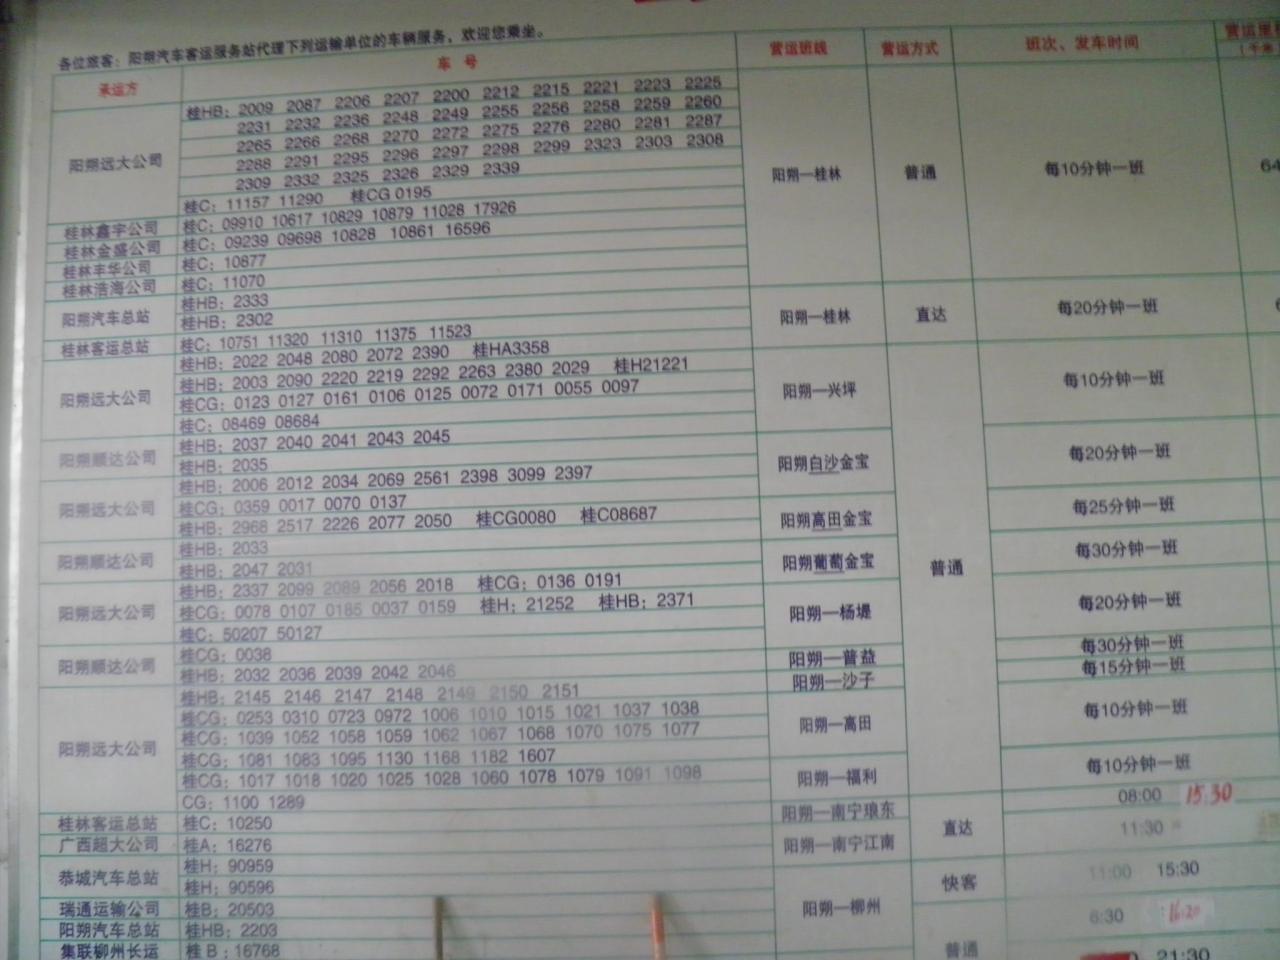 各位旅客：阳朔汽车客运服务站代理下列运输单位的车辆服务，欢迎您乘坐。
承运方 车 号 营运班线 营运方式 班次、发车时间 营运里
（千米
桂HB：2009 2087 2206 2207 2200 2212 2215 2221 2223 2225
2231 2232 2236 2248 2249 2255 2256 2258 2259 2260
2265 2266 2268 2270 2272 2275 2276 2280 2281 2287
阳朔远大公司 2288 2291 2295 2296 2297 2298 2299 2323 2303 2308 阳朔—桂林 普通 每10分钟一班 64
2309 2332 2325 2326 2329 2339
桂C：11157 11290 桂CG 0195
桂林鑫宇公司 桂C：09910 10617 10829 10879 11028 17926
桂林金盛公司 桂C：09239 09698 10828 10861 16596
桂林丰华公司 桂C：10877
桂林浩海公司 桂C：11070
阳朔汽车总站 桂HB：2333 阳朔—桂林 直达 每20分钟一班 6
桂HB：2302
桂林客运总站 桂C：10751 11320 11310 11375 11523
桂HB：2022 2048 2080 2072 2390 桂HA3358
阳朔远大公司 桂HB：2003 2090 2220 2219 2292 2263 2380 2029 桂H21221 阳朔—兴坪 每10分钟一班
桂CG：0123 0127 0161 0106 0125 0072 0171 0055 0097
桂C：08469 08684
阳朔顺达公司 桂HB：2037 2040 2041 2043 2045 阳朔白沙金宝 每20分钟一班
桂HB：2035
阳朔远大公司 桂HB：2006 2012 2034 2069 2561 2398 3099 2397
桂CG：0359 0017 0070 0137 阳朔高田金宝 每25分钟一班
桂HB：2968 2517 2226 2077 2050 桂CG0080 桂C08687
阳朔顺达公司 桂HB：2033 阳朔葡萄金宝 普通 每30分钟一班
桂HB：2047 2031
桂HB：2337 2099 2089 2056 2018 桂CG：0136 0191
阳朔远大公司 桂CG：0078 0107 0185 0037 0159 桂H：21252 桂HB：2371 阳朔—杨堤 每20分钟一班
桂C：50207 50127
阳朔顺达公司 桂CG：0038 阳朔—普益 每30分钟一班
桂HB：2032 2036 2039 2042 2046 阳朔—沙子 每15分钟一班
桂HB：2145 2146 2147 2148 2149 2150 2151
桂CG：0253 0310 0723 0972 1006 1010 1015 1021 1037 1038
阳朔远大公司 桂CG：1039 1052 1058 1059 1062 1067 1068 1070 1075 1077 阳朔—高田 每10分钟一班
桂CG：1081 1083 1095 1130 1168 1182 1607
桂CG：1017 1018 1020 1025 1028 1060 1078 1079 1091 1098 阳朔—福利 每10分钟一班
CG：1100 1289
桂林客运总站 桂C：10250 阳朔—南宁琅东 直达 08:00 15:30
广西超大公司 桂A：16276 阳朔—南宁江南 11:30
恭城汽车总站 桂H：90959 快客 11:00 15:30
桂H：90596
瑞通运输公司 桂B：20503 阳朔—柳州 6:30 16:20
阳朔汽车总站 桂HB：2203
集联柳州长运 桂B：16768 普通 21:30